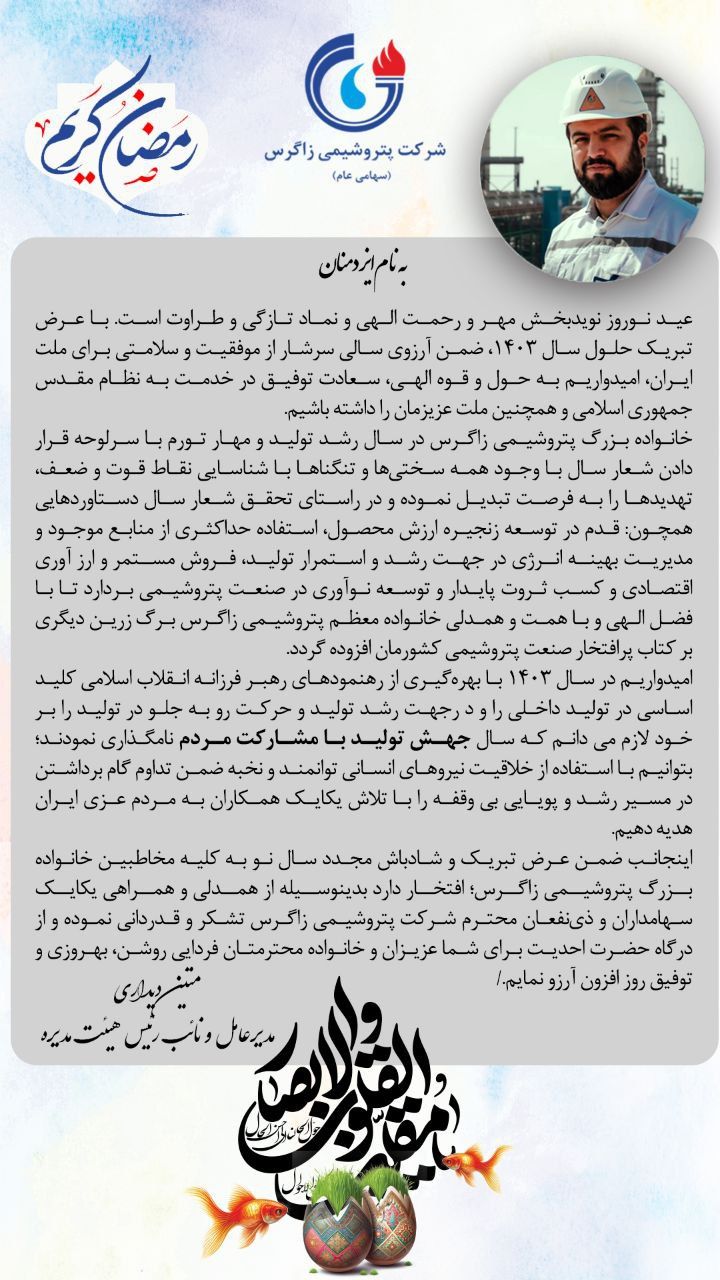 رمضان کریم
شرکت پتروشیمی زاگرس
(سهامی عام)
به نام ایزد منان
عید نوروز نویدبخش مهر و رحمت الهی و نماد تازگی و طراوت است. با عرض
تبریک حلول سال ۱۴۰۳، ضمن آرزوی سالی سرشار از موفقیت و سلامتی برای ملت
ایران، امیدواریم به حول و قوه الهی، سعادت توفیق در خدمت به نظام مقدس
جمهوری اسلامی و همچنین ملت عزیزمان را داشته باشیم.
خانواده بزرگ پتروشیمی زاگرس در سال رشد تولید و مهار تورم با سرلوحه قرار
دادن شعار سال با وجود همه سختی‌ها و تنگناها با شناسایی نقاط قوت و ضعف،
تهدیدها را به فرصت تبدیل نموده و در راستای تحقق شعار سال دستاوردهایی
همچون: قدم در توسعه زنجیره ارزش محصول، استفاده حداکثری از منابع موجود و
مدیریت بهینه انرژی در جهت رشد و استمرار تولید، فروش مستمر و ارز آوری
اقتصادی و کسب ثروت پایدار و توسعه نوآوری در صنعت پتروشیمی بردارد تا با
فضل الهی و با همت و همدلی خانواده معظم پتروشیمی زاگرس برگ زرین دیگری
بر کتاب پرافتخار صنعت پتروشیمی کشورمان افزوده گردد.
امیدواریم در سال ۱۴۰۳ با بهره‌گیری از رهنمودهای رهبر فرزانه انقلاب اسلامی کلید
اساسی در تولید داخلی را و د رجهت رشد تولید و حرکت رو به جلو در تولید را بر
خود لازم می دانم که سال جهش تولید با مشارکت مردم نامگذاری نمودند؛
بتوانیم با استفاده از خلاقیت نیروهای انسانی توانمند و نخبه ضمن تداوم گام برداشتن
در مسیر رشد و پویایی بی وقفه را با تلاش یکایک همکاران به مردم عزی ایران
هدیه دهیم.
اینجانب ضمن عرض تبریک و شادباش مجدد سال نو به کلیه مخاطبین خانواده
بزرگ پتروشیمی زاگرس؛ افتخار دارد بدینوسیله از همدلی و همراهی یکایک
سهامداران و ذی‌نفعان محترم شرکت پتروشیمی زاگرس تشکر و قدردانی نموده و از
درگاه حضرت احدیت برای شما عزیزان و خانواده محترمتان فردایی روشن، بهروزی و
توفیق روز افزون آرزو نمایم./
متین دیداری
مدیرعامل و نائب رئیس هیئت مدیره
یا مقلب القلوب والابصار